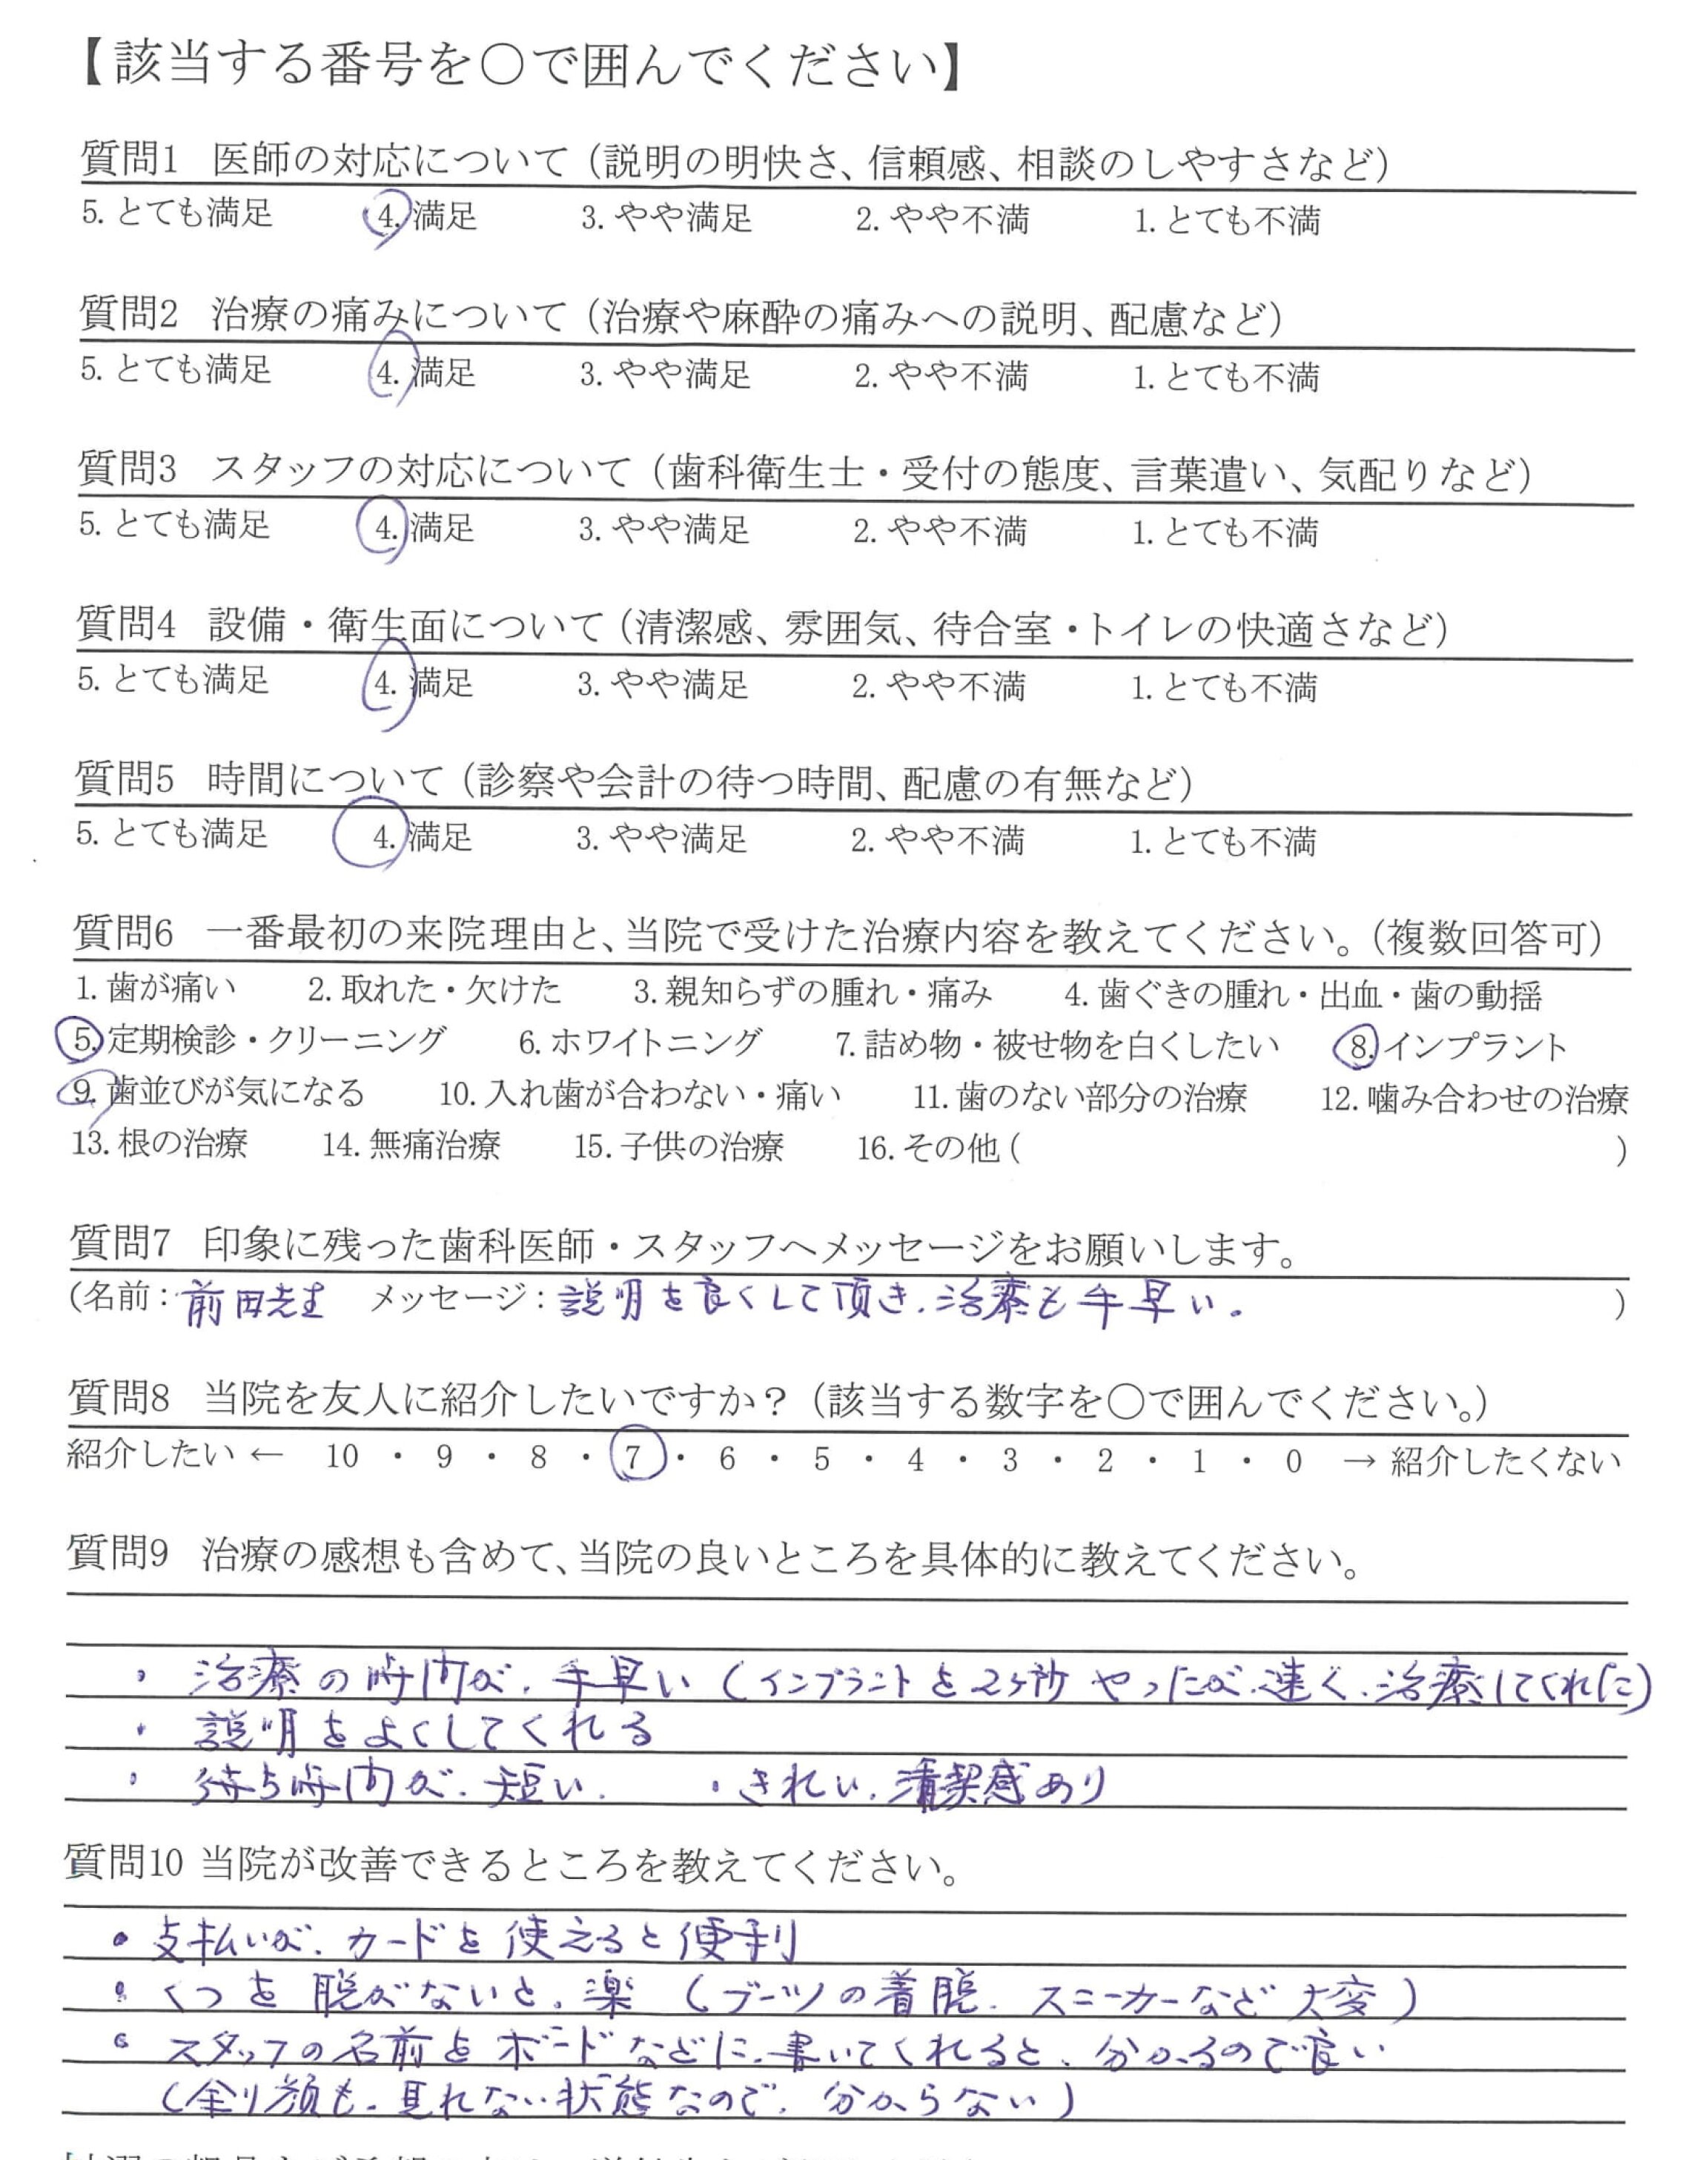 【該当する番号を○で囲んでください】
質問1 医師の対応について（説明の明快さ、信頼感、相談のしやすさなど）
5. とても満足 4. 満足 3. やや満足 2. やや不満 1. とても不満
質問2 治療の痛みについて（治療や麻酔の痛みへの説明、配慮など）
5. とても満足 4. 満足 3. やや満足 2. やや不満 1. とても不満
質問3 スタッフの対応について（歯科衛生士・受付の態度、言葉遣い、気配りなど）
5. とても満足 4. 満足 3. やや満足 2. やや不満 1. とても不満
質問4 設備・衛生面について（清潔感、雰囲気、待合室・トイレの快適さなど）
5. とても満足 4. 満足 3. やや満足 2. やや不満 1. とても不満
質問5 時間について（診察や会計の待つ時間、配慮の有無など）
5. とても満足 4. 満足 3. やや満足 2. やや不満 1. とても不満
質問6 一番最初の来院理由と、当院で受けた治療内容を教えてください。（複数回答可）
1. 歯が痛い 2. 取れた・欠けた 3. 親知らずの腫れ・痛み 4. 歯ぐきの腫れ・出血・歯の動揺
5. 定期検診・クリーニング 6. ホワイトニング 7. 詰め物・被せ物を白くしたい 8. インプラント
9. 歯並びが気になる 10. 入れ歯が合わない・痛い 11. 歯のない部分の治療 12. 噛み合わせの治療
13. 根の治療 14. 無痛治療 15. 子供の治療 16. その他（ ）
質問7 印象に残った歯科医師・スタッフへメッセージをお願いします。
（名前：前田先生 メッセージ：説明を良くして頂き、治療も手早い。 ）
質問8 当院を友人に紹介したいですか？（該当する数字を○で囲んでください。）
紹介したい ← 10 ・ 9 ・ 8 ・ 7 ・ 6 ・ 5 ・ 4 ・ 3 ・ 2 ・ 1 ・ 0 → 紹介したくない
質問9 治療の感想も含めて、当院の良いところを具体的に教えてください。
・ 治療の時間が、手早い（インプラントを2ヶ所やったが、速く、治療してくれた）
・ 説明をよくしてくれる
・ 待ち時間が、短い、 ・きれい、清潔感あり
質問10 当院が改善できるところを教えてください。
・支払いが、カードを使えると便利
・くつを脱がないと、楽（ブーツの着脱、スニーカーなど大変）
・スタッフの名前をボードなどに、書いてくれると、分かるので良い
（余り顔も、見れない状態なので、分からない）